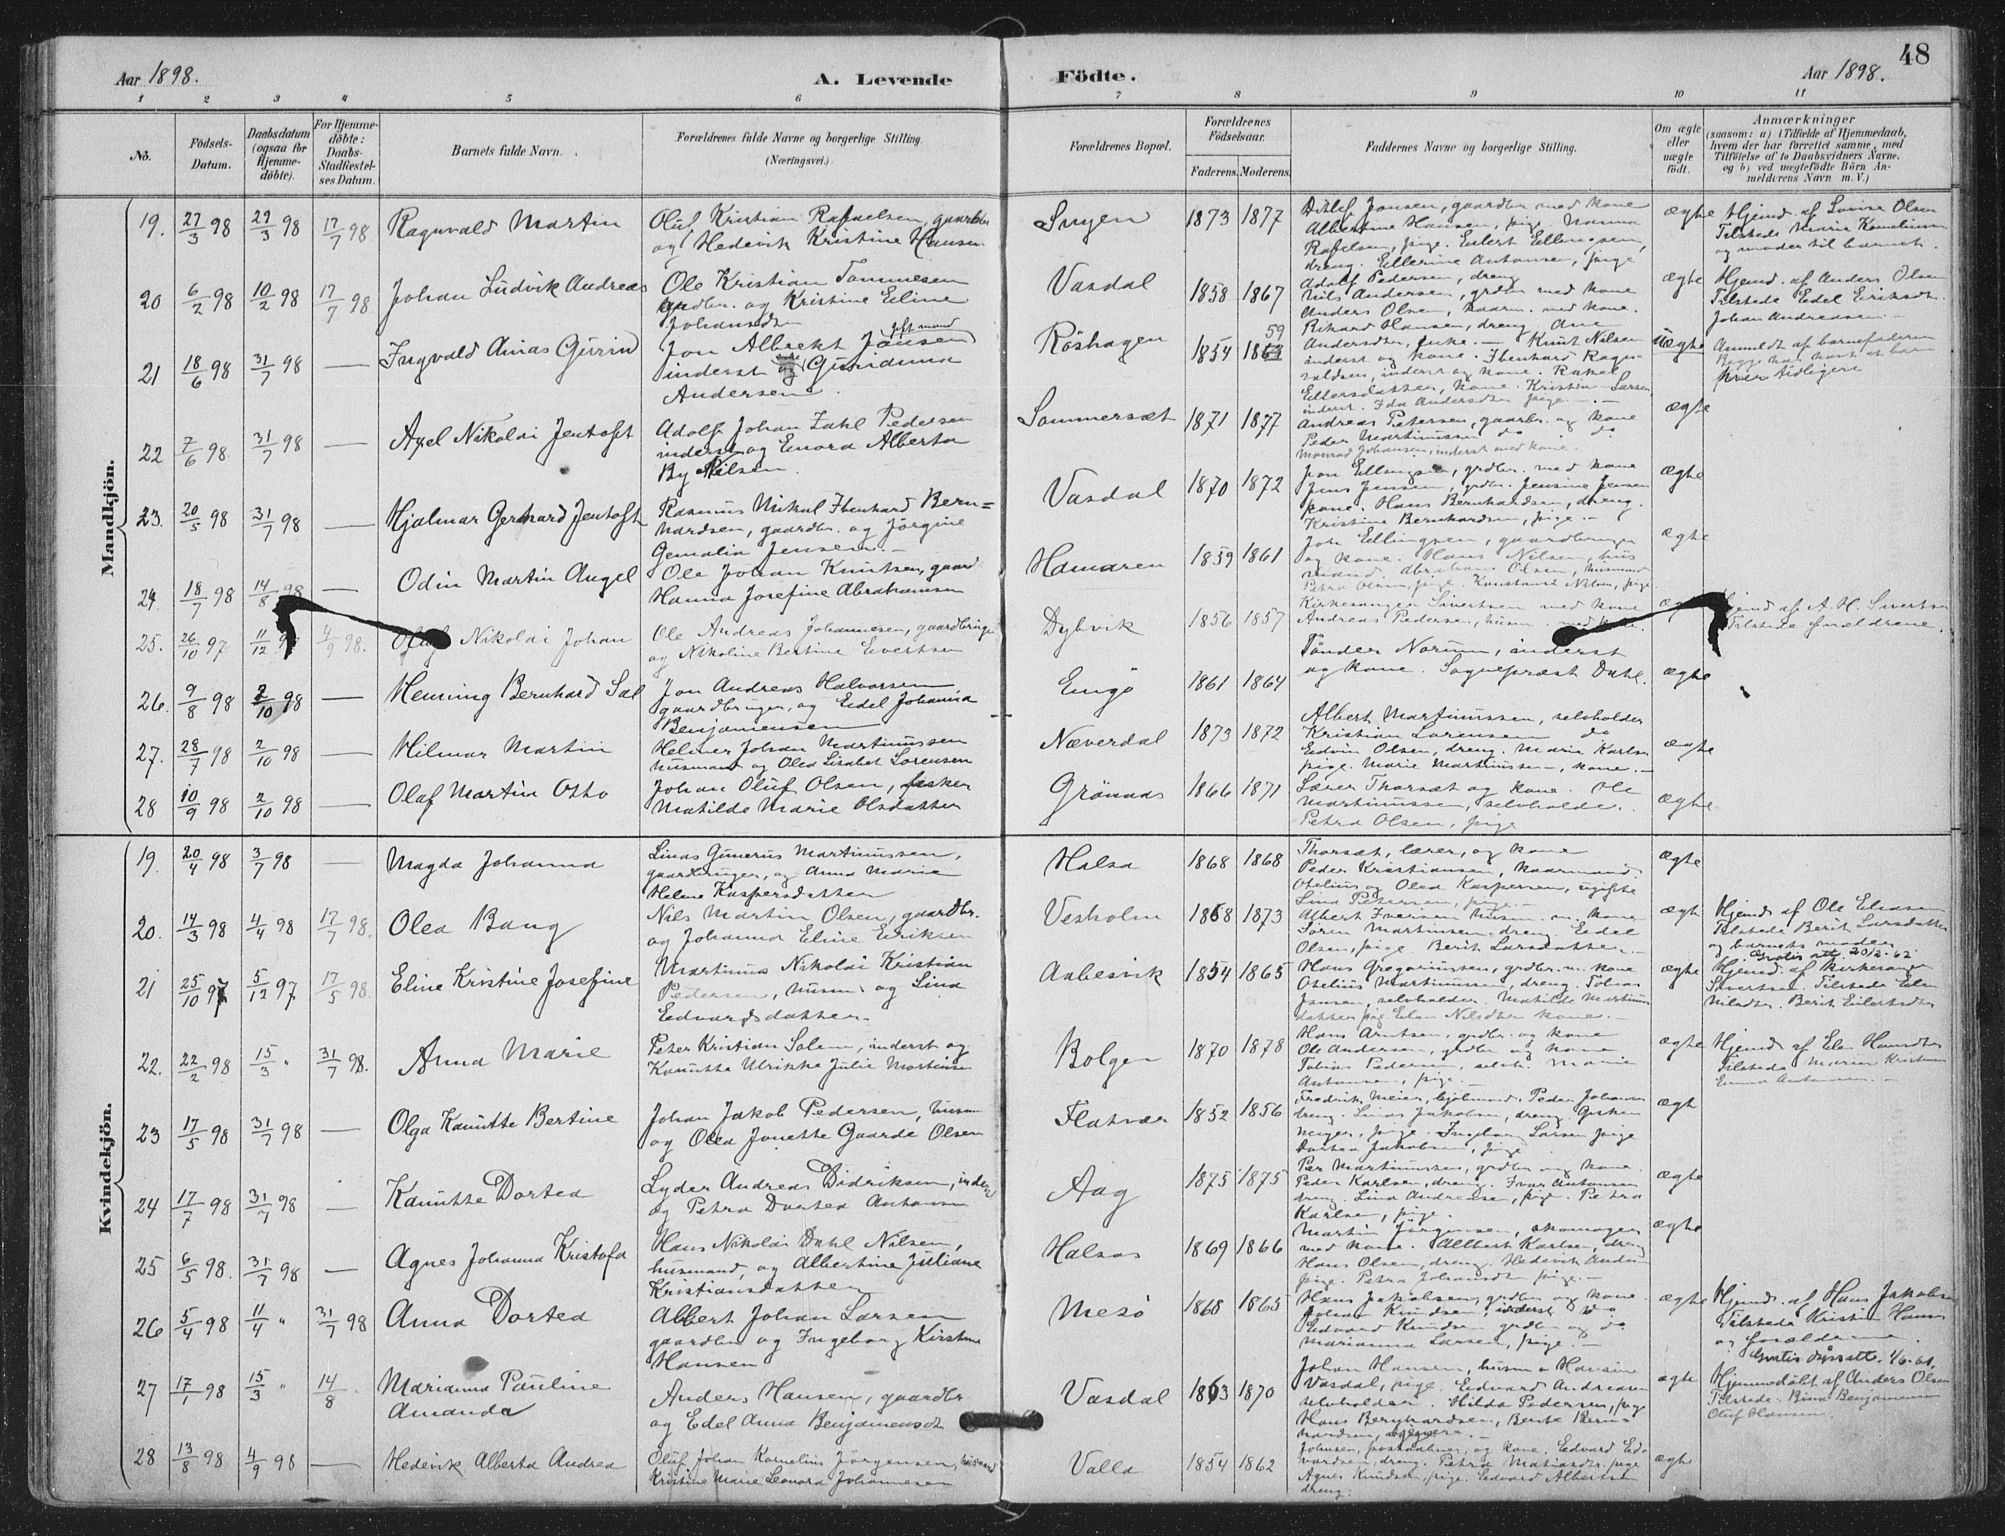 Aar 1898.
A. Levende
Födte.
Aar 1898.
48
1 2 3 4 5 6 7 8 9 10 11
No.
Födsels-
Datum.
Daabsdatum
(ogsaa for
Hjemme-
döbte).
For Hjemme-
döbte:
Daabs-
Stadfæstel-
ses Datum.
Barnets fulde Navn.
Forældrenes fulde Navne og borgerlige Stilling.
(Næringsvei.)
Forældrenes Bopæl.
Forældrenes
Födselsaar.
Faderens. Moderens.
Faddernes Navne og borgerlige Stilling.
Om ægte
eller
uægte
födt.
Anmærkninger
(saasom: a) i Tilfælde af Hjemmedaab,
hvem der har forrettet samme, med
Tilföielse af to Daabsvidners Navne.
og b) ved uægtefödte Börn An-
melderens Navn m. V.)
Mandkjön.
19. 27/3 98 29/3 98 17/7 98 Ragnvald Martin
Oluf Kristian Rafaelsen, gaardbr
og Hedevik Kristine Hansen
1873 1877
Ditlef Jansen, gaardbr med kone
Albertine Hansen, pige. Hanna
Rafelsen, pige. Eilert Ellingsen,
dreng. Ellerine Antonsen, pige,
ægte
Hjemd. af Lovise Olsen
Tilstede Marie Kornelíussen
og moder til barnet.
20 6/2 98 10/2 98 17/7 98 Johan Ludvik Andreas
Ole Kristian Tommesen
grdbr. og Kristine Eline
Johansdtr
Vasdal 1858 1867
Adolf Pedersen, dreng
Nils Andersen, grdbr med kone
Anders Olsen, kaarm. med kone.
ægte
Hjemd. af Anders Olsen
Tilstede Edel Eriksdtr.
Johan Andreassen
21 18/6 98 31/7 98 — Ingvald Anias Gurin
Jon Albrekt Jansen gift mand
inderst og Guridana
Andersen.
Röshagen 1854 59
Rikard Hansen, dreng. Ane
Andersdtr, enke. — Knut Nilsen
inderst og kone.
inderst. Ida Andersdtr pige.
Uægte
Anmeldt af barnefaderen
Begge har havt et barn
hver tidligere
22 7/6 98 31/7 98 — Axel Nikolai Jentoft
Adolf Johan Zahl Pedersen
inderst og Enora Alberta
By Nilsen.
Sommersæt 1871 1877
Andreas Petersen, gaardbr. og kone
Peder Martinussen do do
Johansen, inderst med kone.
ægte
23. 20/5 98 31/7 98 — Hjalmar Gerhard Jentoft
Rasmus Mikal Ibenhard Bern-
hardsen, gaardbr. og Jörgine
Jensen.—
Vasdal 1870 1872
Jon Ellingsen, grdbr. med kone
Jens Jenssen, grdbr. Jensine Jensen
kone. Hans Bernhardsen, dreng.
Kristine Bernhardsen, pige.—
ægte
24. 18/7 98 14/8 98 — Odin Martin Angel
Ole Johan Knutsen, gaard
Hanna Josefine Abrahamsen
Hamaren 1859 1861
Joh. Ellingsen, gaardbruger
og kone. Hans Nilsen, hus
mand. Abraham Olsen, husmand
Petra Olsen, pige. Konstanse Nilsen, pige
ægte
25. 26/10 97 11/12 97 4/9 98. Olaf Nikolai Johan
Ole Andreas Johannesen, gaardbruger
og Nikoline Bertine Evertsen
Dybvik 1856 1857
Kirkesanger Sivertsen med kone
Andreas Pedersen, husm. med kone.
Hjemd af A. H. Sivertsen
Tilstede forældrene.
26. 9/8 98 2/10 98 — Henning Bernhard Sal
Jon Andreas Halvorsen
gaardbruger, og Edel Johanna
Benjaminsen
Engö 1861 1864
Tönder Norum, inderst
og kone. Sogneprest Dahl.
ægte
27. 28/7 98 2/10 98 — Hilmar Martin
Helmer Johan Martinussen
husmand og Olea Lisabet Sörensen
Næverdal 1873 1872
Albert Martinussen, selvholder
Kristian Sorensen do
Edvin Olsen, dreng. Marie Karlsen
pige. Marie Martinussen, kone.—
ægte
28 10/9 98 2/10 98 — Olaf Martin Otto
Johan Oluf Olsen, fisker
Matilde Marie Olsdatter
Grönaas 1866 1871
Lærer Thorsæt og kone. Ole
Martinussen, selvholde.
Petra Olsen, pige
ægte
Kvindekjön.
19. 20/4 98 3/7 98 — Magda Johanna
Linas Gunerus Martinussen,
gaardbruger, og Anna Marie
Helene Kaspersdatter
Halsa 1868 1868
Thorsæt, lærer, og kone
Peder Kristiansen, kaarmand
Otelius og Olea Kaspersen, ugifte
Lina Petersen, pige.—
ægte
20. 14/3 98 4/4 98 17/7 98. Olea Bang
Nils Martin Olsen, gaardbr.
og Johanna Eline Eriksen
Vesholm 1868 1873
Albert Iversen husm. m. kone
Sören Martinsen dreng. Edel
Olsen, pige Berit Larsdatter
ægt
Hjemd. af Ole Eliasen
Tilstede Berit Larsdatter
og barnets moder
Gratis att. 20/2-62
21 25/10 97 5/12 97 17/5 98. Eline Kristine Josefine
Martinus Nikolai Kristian
Pedersen, husm. og Lina
Edvardsdatter.
Aabesvik 1854 1865
Hans Gregoriussen, grdbr. m. kone
Otelius Martinussen, dreng. Tobias
Jansen, selvholder. Matilde Martinus
datter pige. Elen Nilsdtr kone.—
ægte
Hjemd. af kirkesanger
Sivertsen. Tilstede Elen
Nilsdtr. Berit Eilertsdtr
22. 22/2 98 15/3 " 31/7 98. Anna Marie
Peter Kristian Solem, inderst og
Kanutte Ulrikke Julie Mortinsen
Bolgen 1870 1878
Hans Arntsen, grdbr. og kone
Ole Andersen, grdbr og kone
Tobias Pedersen, selvh. Marie
Antonsen, pige.—
ægte
Hjemd. af Elen Hansdtr
Tilstede Maren Kristine
Emma Antonsen.—
23 17/5 98 31/7 98 — Olga Kanutte Bertine
Johan Jakob Pedersen, husm
og Olea Jonette Gaarde Olsen
Flatvær 1852 1856
Fredrik Meier, Peder Johansen
dreng. Linas Jakobsen, dreng.
Meyer, pige. Ingeborg Larsen pige
Dortea Jakobsen, pige
ægt
24 17/7 98 31/7 98 — Kanutte Dortea
Lyder Andreas Didriksen, inderst
og Petra Dortea Antonsen
Aag 1875 1875
Per Martinussen, grdbr og kone.
Peder Karlsen, dreng. Ivar Antonsen
dreng. Lina Andreassen, pige. Petra
Karlsen, pige.
ægte
25 6/5 98. 31/7 98 — Agnes Johanna Kristofa
Hans Nikolai Dahl Nilsen,
husmand, og Albertine Juliane
Kristiansdatter
Halsos 1869 1866
Martin Jörgensen, skomager
med kone. Albert Karlsen, dreng
Hans Olsen, dreng. Hedevik
pige. Petra Johansdtr pige.—
ægte
26 5/4 98 11/4 " 31/7 98 Anna Dortea
Albert Johan Larsen
gaardbr og Ingeborg Kirstine
Hansen
Mesö 1868 1865
Hans Jakobsen, grdbr og kone.
Johan Knudsen, inderst do
Edvard Knudsen grdbr og do
Marianna Larsen, pige.—
ægte
Hjemd. af Hans Jakobsen
Tilstede Kristin Hans
og forældrene.
Gratis dåpsatt. 1/6-61.
27 17/1 98 15/3 " 14/8 Marianna Pauline
Amanda
Anders Hansen, gaardbr
og Edel Anna Benjaminsdt
Vasdal 1863 1870
Johan Hansen, husm. Hansine
Vasdal, pige. Edvard Andreasen
selvholder. Hilda Pedersen, pige
Hans Bernhardsen, Bente Bern
hardsen,
ægte
Hjemmedöbt af Anders Olsen
Tilstede. Benjaminsen
Oluf Hansen.
28 13/8 98 4/9 98 — Hedevik Alberta Andrea
Oluf Johan Kornelius Jörgensen, husmand
Kristine Marie Leonora Johannesen
Valla 1854 1862
Johnsen, postaabner, og kone. Edvard Ed-
vardsen, dreng. Petra Matiasdtr. pige
Agnes Knudsen, pige. Edvard Albertsen
dreng.
ægte